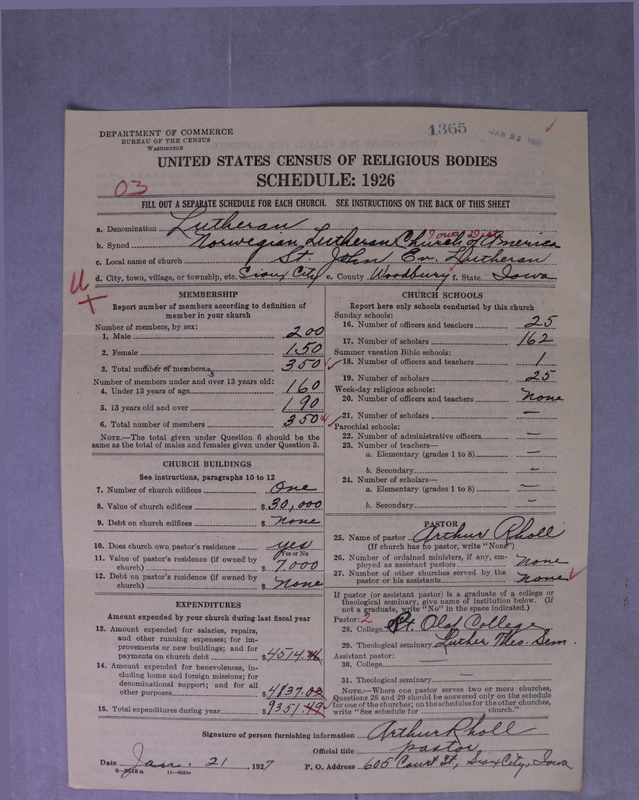 DEPARTMENT OF COMMERCE
BUREAU OF THE CENSUS
WASHINGTON
1365
JAN 22
UNITED STATES CENSUS OF RELIGIOUS BODIES
SCHEDULE: 1926
03
FILL OUT A SEPARATE SCHEDULE FOR EACH CHURCH. SEE INSTRUCTIONS ON THE BACK OF THIS SHEET
a. Denomination Lutheran
Iowa Dist
b. Synod Norwegian Lutheran Church of America
c. Local name of church St. John Ev. Lutheran
d. City, town, village, or township, etc. Sioux City e. County Woodbury f. State Iowa
MEMBERSHIP
Report number of members according to definition of
member in your church
Number of members, by sex:
1. Male 200
2. Female 150
3. Total number of members 350
Number of members under and over 13 years old:
4. Under 13 years of age 160
5. 13 years old and over 190
6. Total number of members 350
NOTE.—The total given under Question 6 should be the
same as the total of males and females given under Question 3.
CHURCH BUILDINGS
See instructions, paragraphs 10 to 12
7. Number of church edifices One
8. Value of church edifices $30,000
9. Debt on church edifices $ None
10. Does church own pastor's residence yes
Yes or No
11. Value of pastor's residence (if owned by
church) $ 7,000
12. Debt on pastor's residence (if owned by
church) $ None
EXPENDITURES
Amount expended by your church during last fiscal year
13. Amount expended for salaries, repairs,
and other running expenses; for im-
provements or new buildings; and for
payments on church debt $4514.46
14. Amount expended for benevolences, in-
cluding home and foreign missions; for
denominational support; and for all
other purposes $4837.03
15. Total expenditures during year $9351.49
CHURCH SCHOOLS
Report here only schools conducted by this church
Sunday schools:
16. Number of officers and teachers 25
17. Number of scholars 162
Summer vacation Bible schools:
18. Number of officers and teachers 1
19. Number of scholars 25
Week-day religious schools:
20. Number of officers and teachers None
21. Number of scholars —
Parochial schools:
22. Number of administrative officers —
23. Number of teachers—
a. Elementary (grades 1 to 8) —
b. Secondary —
24. Number of scholars—
a. Elementary (grades 1 to 8) —
b. Secondary —
PASTOR
25. Name of pastor Arthur Rholl
(If church has no pastor, write "None")
26. Number of ordained ministers, if any, em-
ployed as assistant pastors None
27. Number of other churches served by the
pastor or his assistants None
If pastor (or assistant pastor) is a graduate of a college or
theological seminary, give name of institution below. (If
not a graduate, write "No" in the space indicated.)
Pastor: 2
28. College St. Olaf College
29. Theological seminary Luther Theo. Sem.
Assistant pastor:
30. College
31. Theological seminary —
NOTE.—Where one pastor serves two or more churches,
Questions 28 and 29 should be answered only on the schedule
for one of the churches; on the schedules for the other churches,
write "See schedule for church."
Signature of person furnishing information Arthur Rholl
Official title pastor
Date Jan. 21, 1927 P. O. Address 605 Court St., Sioux City, Iowa